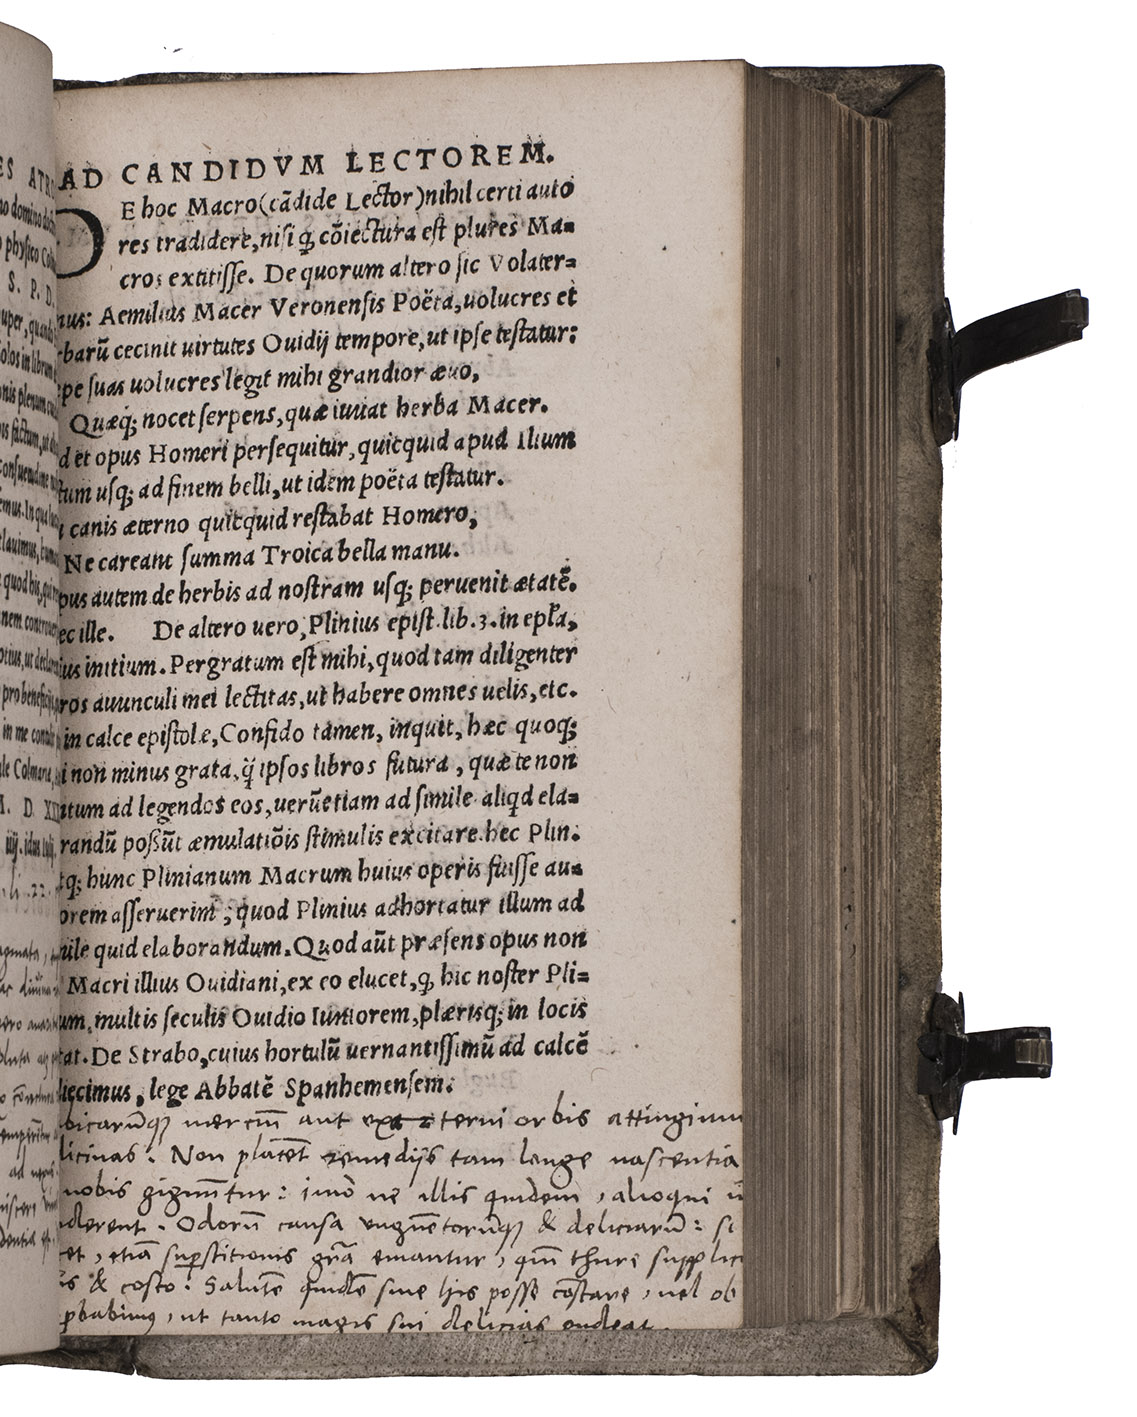 ES ATRO
no domino doct
physico Col
S. P. D.
uper, quand
olos in librum
onis plenum
us factum, ut
consuendine
emus. In qua
lauimus, huma
quod his, qui
nem controuer
pitius, ut declara
pro beneficijs
in me consul
ale Colmariæ,
M. D. XII
iiij. idus Iulij.
AD CANDIDVM LECTOREM.
DE hoc Macro (cādide Lector) nihil certi auto
res tradidere, nisi ꝙ cōiectura est plures Ma=
cros extitisse. De quorum altero sic Volater=
nus: Aemilius Macer Veronensis Poëta, uolucres et
rbarū cecinit uirtutes Ouidij tempore, ut ipse testatur:
epe suas uolucres legit mihi grandior æuo,
Quæq; nocet serpens, quæ iuuat herba Macer.
d et opus Homeri persequitur, quicquid apud Ilium
ctum usq; ad finem belli, ut idem poëta testatur.
u canis æterno quicquid restabat Homero,
Ne careant summa Troica bella manu.
pus autem de herbis ad nostram usq; peruenit ætatē.
ec ille. De altero uero, Plinius epist. lib. 3. in epl̄a,
ius initium. Pergratum est mihi, quod tam diligenter
ros auunculi mei lectitas, ut habere omnes uelis, etc.
in calce epistolæ, Confido tamen, inquit, hæc quoq;
i non minus grata, q̄ ipsos libros futura, quæ te non
ntum ad legendos eos, uerū etiam ad simile aliqd ela=
randū possūt æmulatiōis stimulis excitare. hec Plin.
tq; hunc Plinianum Macrum huius operis fuisse au=
orem asseruerim; quod Plinius adhortatur illum ad
mile quid elaborandum. Quod aūt præsens opus non
Macri illius Ouidiani, ex eo elucet, ꝙ hic noster Pli=
um, multis seculis Ouidio Iuniorem, plærisq; in locis
tat. De Strabo, cuius hortulū uernantissimū ad calcē
diecimus, lege Abbatē Spanhemensem.
bicarūq; merciū aut externi orbis attingimus
dicinas. Non placēt remedijs tam longe nascentia
nobis gignūtur: imo ne illis quidem, alioqui n
derent. Odorū causa unguētorūq; & deliciarū: si
cet, etiā sup̄stitionis gr̄a emantur, qm̄ thure supplic
is & costo: Salutē quidē sine his posse cōstare, uel ob
ꝓbabimus, ut tanto magis sui delicias pudeat.